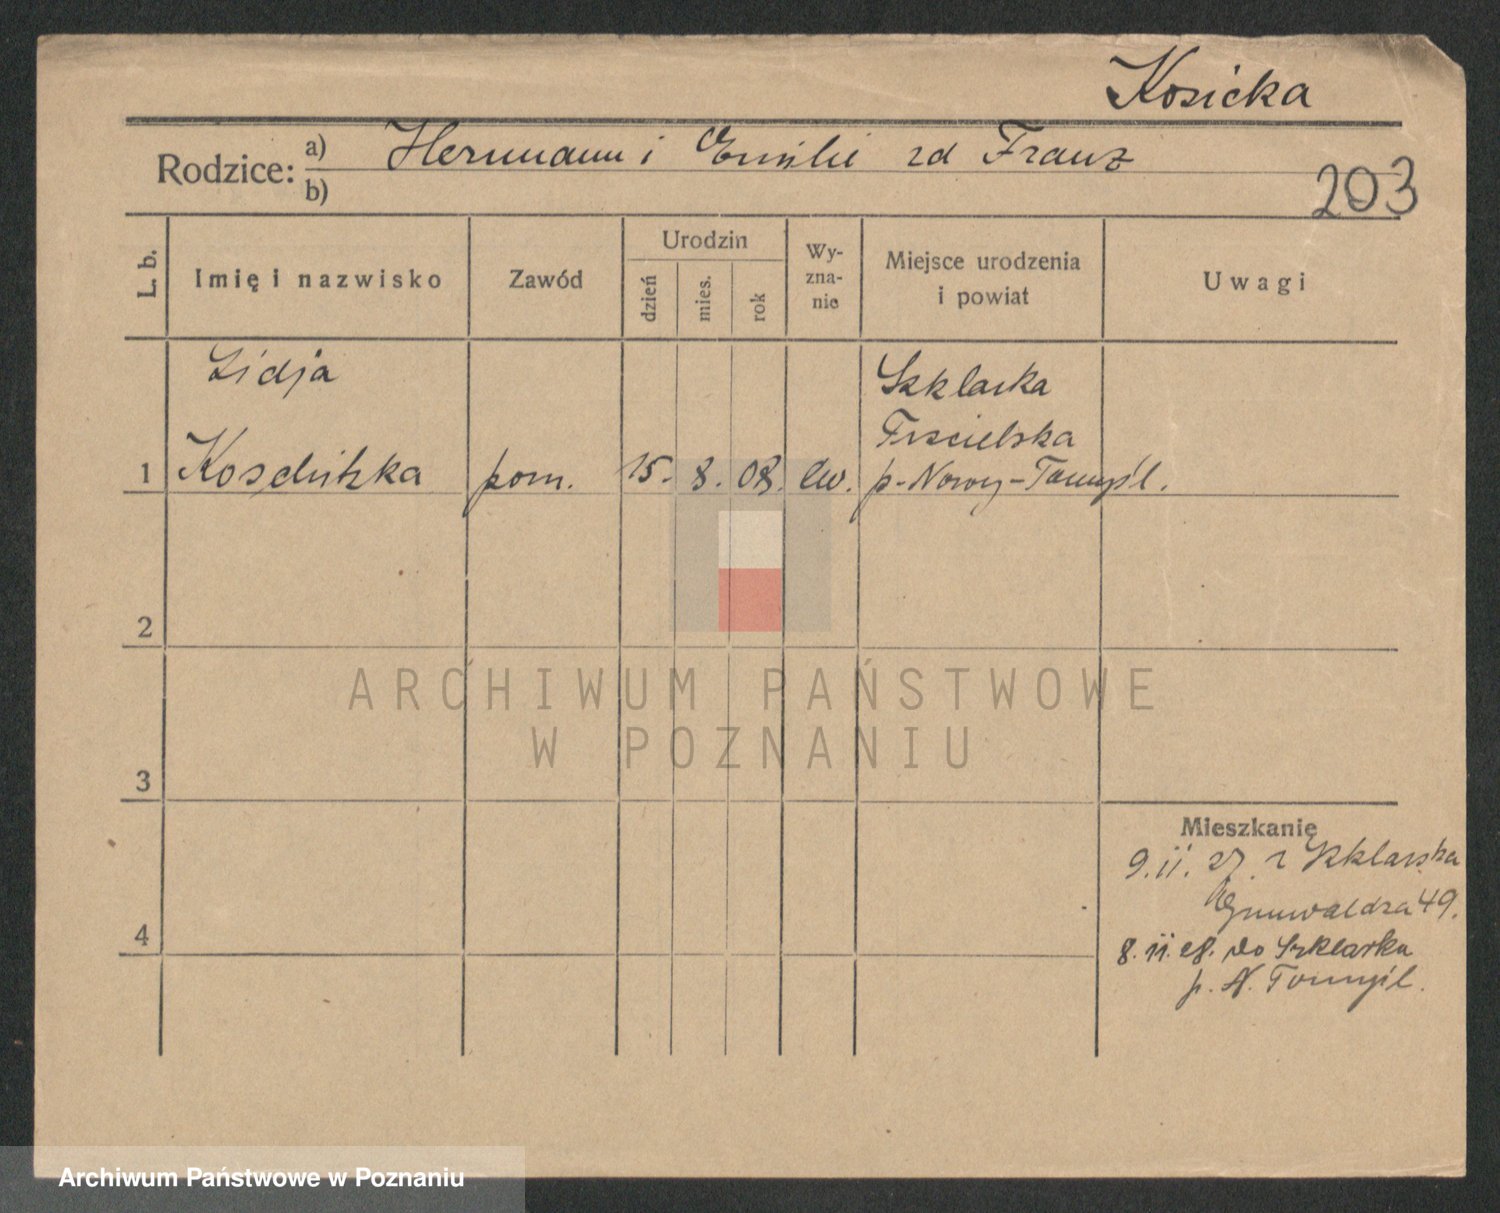 Kosicka
Rodzice: a) Hermann i Emilie zd Franz
b)
203
L. b. Imię i nazwisko Zawód Urodzin dzień mies. rok Wy-zna-nie Miejsce urodzenia i powiat Uwagi
Lidja
Szklarka
Trzcielska
1 Koschitzka pom. 15. 8. 08. Ew. p. Nowy-Tomyśl.
2
3
4
Mieszkanie
9.11.27. z Szklarska
Grunwaldza 49.
8.11.28. do Szklarka
p. N. Tomyśl.
ARCHIWUM PAŃSTWOWE
W POZNANIU
Archiwum Państwowe w Poznaniu